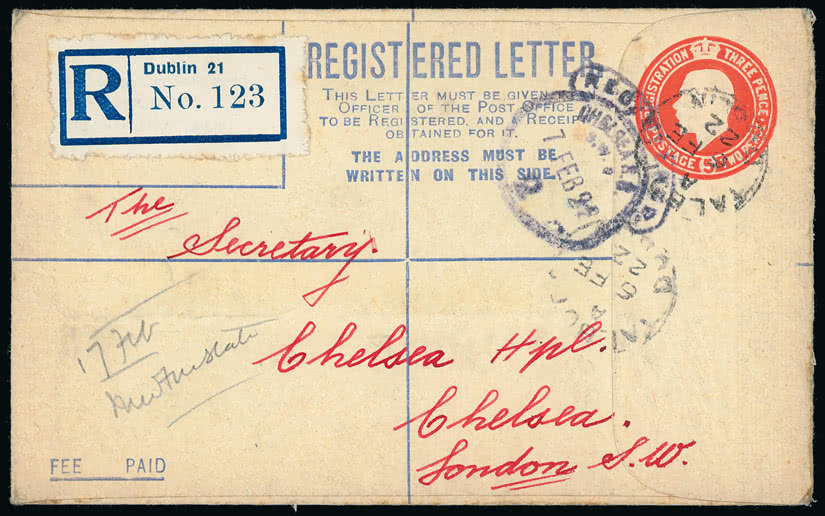 R
Dublin 21
No. 123
REGISTERED LETTER
THIS LETTER MUST BE GIVEN
OFFICER OF THE POST OFFICE
TO BE REGISTERED, AND A RECEIPT
OBTAINED FOR IT.
THE ADDRESS MUST BE
WRITTEN ON THIS SIDE.
REGISTRATION THREE PENCE
POSTAGE TWO PENCE
CHELSEA
S.W.
7 FEB 22
5 FE
22
The
Secretary.
Chelsea Hpl.
Chelsea.
London S.W.
17 Feb
FEE PAID